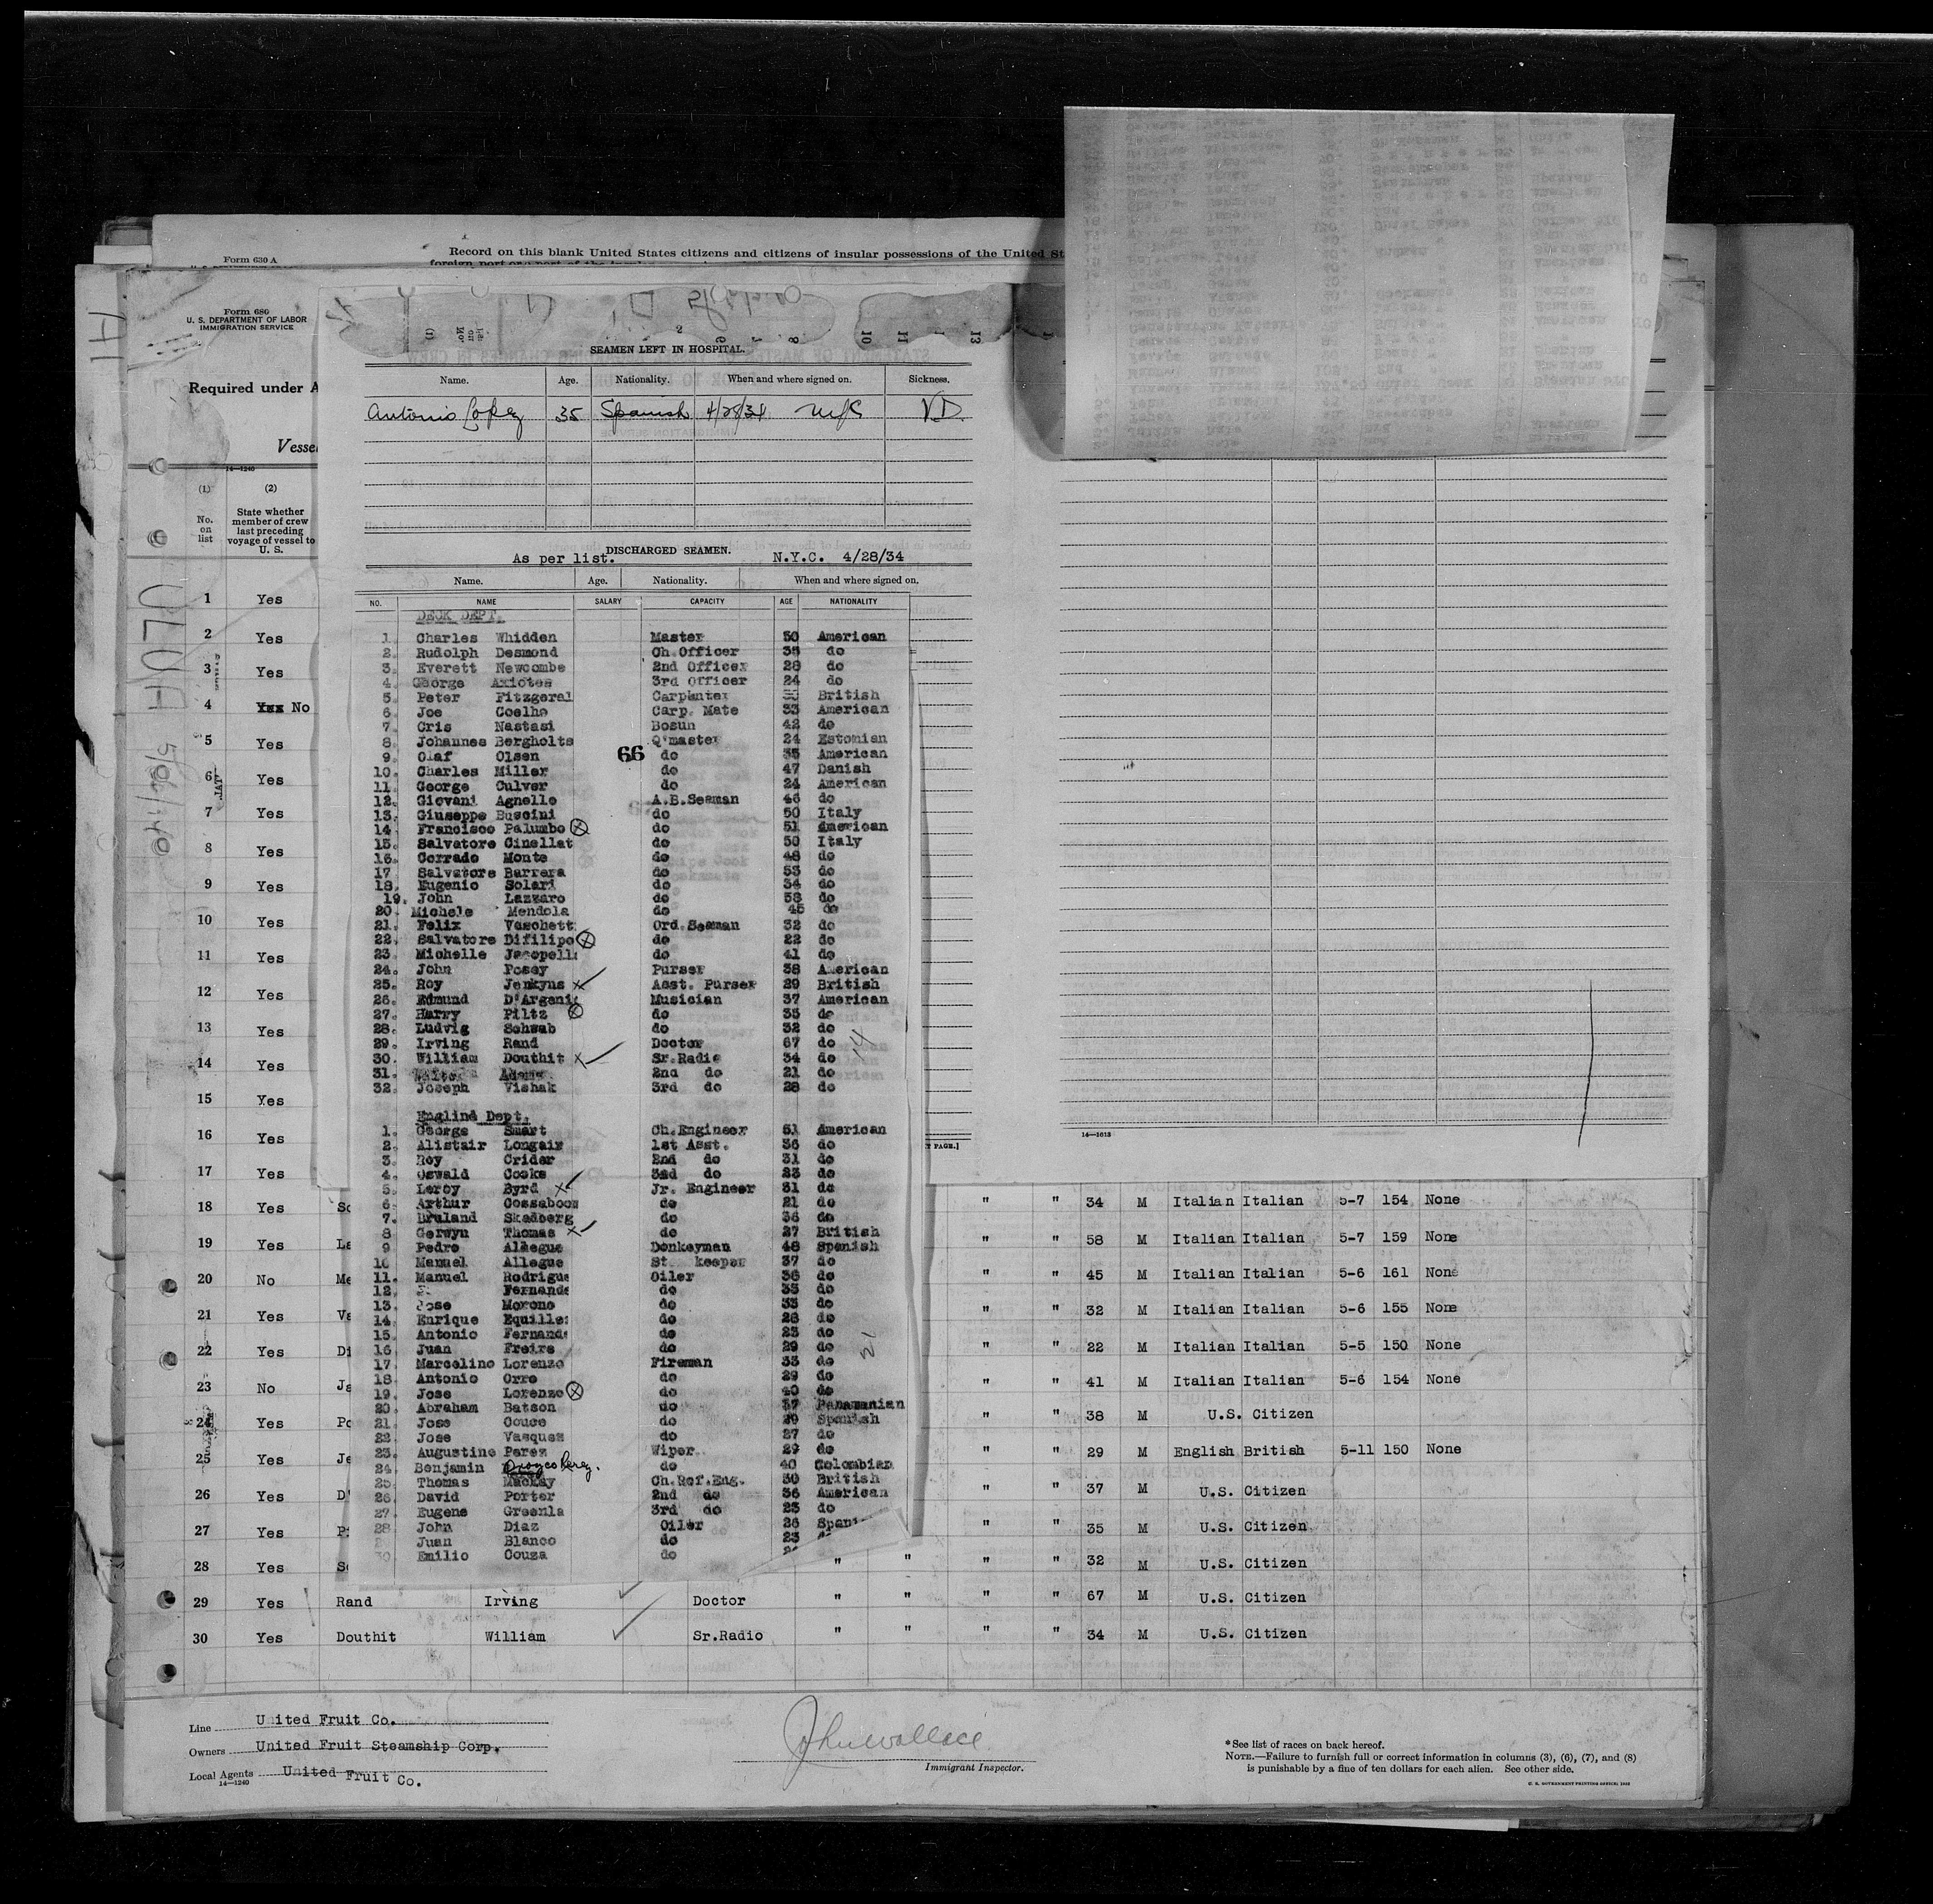 Form 630 A
Record on this blank United States citizens and citizens of insular possessions of the United St
Form 680
U. S. DEPARTMENT OF LABOR
IMMIGRATION SERVICE
Required under A
Vessel
14—1240
(1) (2)
No. on list
State whether member of crew last preceding voyage of vessel to U. S.
ULUA
SEAMEN LEFT IN HOSPITAL.
Name. Age. Nationality. When and where signed on. Sickness.
Antonio Lopez 35 Spanish 4/28/34 VD
DISCHARGED SEAMEN.
As per list. N.Y.C. 4/28/34
Name. Age. Nationality. When and where signed on.
NO. NAME SALARY CAPACITY AGE NATIONALITY
DECK DEPT.
1. Charles Whidden Master 50 American
2. Rudolph Desmond Ch.Officer 35 do
3. Everett Newcombe 2nd Officer 28 do
4. George Axiotes 3rd Officer 24 do
5. Peter Fitzgeral Carpenter British
6. Joe Coelho Carp. Mate 33 American
7. Cris Nastasi Bosun 42 do
8. Johannes Bergholts Q'master 24 Estonian
66
9. Olaf Olsen do 35 American
10. Charles Miller do 47 Danish
11. George Culver do 24 American
12. Giovani Agnello A.B.Seaman 46 do
13. Giuseppe Buscini do 50 Italy
14. Francisco Palumbo do 51 American
15. Salvatore Cinellat do 50 Italy
16. Corrado Monte do 48 do
17. Salvatore Barrera do 53 do
18. Eugenio Solari do 34 do
19. John Lazzaro do 58 do
20. Michele Mendola do 45 do
21. Felix Vaschett Ord.Seaman 32 do
22. Salvatore Difilipo do 22 do
23. Michelle Jacopelli do 41 do
24. John Posey Purser 38 American
25. Roy Jenkyns x Asst. Purser 29 British
26. Edmund D'Argeni Musician 37 American
27. Harry Piltz do 35 do
28. Ludvig Schwab do 32 do
29. Irving Rand Doctor 67 do
30. William Douthit x Sr.Radio 34 do
31. Adams 2nd do 21 do
32. Joseph Vishak 3rd do 28 do
14
Engline Dept.
1. George Smart Ch.Engineer 51 American
2. Alistair Longair 1st Asst. 36 do
3. Roy Crider 2nd do 31 do
4. Oswald Cooke 3rd do 23 do
5. Leroy Byrd x Jr. Engineer 31 do
6. Arthur Cossaboom do 21 do
7. Bruland Skadberg do 36 do
8 Gerwyn Thomas x do 27 British
9 Pedro Allegue Donkeyman 48 Spanish
10 Manuel Allegue St. keeper 37 do
11. Manuel Rodrigue Oiler 36 do
12. Fernande do 35 do
13. Jose Morono do 33 do
14. Enrique Equille do 28 do
15. Antonio Fernande do 23 do
16. Juan Freire do 29 do
17. Marcelino Lorenzo Fireman 33 do
18. Antonio Orro do 29 do
19. Jose Lorenzo do 40 do
20. Abraham Batson do 37 Panamanian
21. Jose Couce do 29 Spanish
22. Jose Vasquez do 27 do
23. Augustino Perez Wiper 29 do
24. Benjamin Orozco Perez. do 40 Colombian
25. Thomas Mackay Ch.Ref.Eng. 30 British
26. David Porter 2nd do 36 American
27. Eugene Greenla 3rd do 23 do
28. John Diaz Oiler 26 Spani
Juan Blanco do 23
30 Emilio Couza do
21
T PAGE.]
14—1613
1 Yes
2 Yes
3 Yes
4 No
5 Yes
6 Yes
7 Yes
8 Yes
9 Yes
10 Yes
11 Yes
12 Yes
13 Yes
14 Yes
15 Yes
16 Yes
17 Yes
18 Yes Sc " " 34 M Italian Italian 5-7 154 None
19 Yes La " " 58 M Italian Italian 5-7 159 None
20 No Me " " 45 M Italian Italian 5-6 161 None
21 Yes Va " " 32 M Italian Italian 5-6 155 None
22 Yes Di " " 22 M Italian Italian 5-5 150 None
23 No Ja " " 41 M Italian Italian 5-6 154 None
24 Yes Po " " 38 M U.S. Citizen
25 Yes Je " " 29 M English British 5-11 150 None
26 Yes D' " " 37 M U.S. Citizen
27 Yes Pi " " 35 M U.S. Citizen
28 Yes Sc " " " " 32 M U.S. Citizen
29 Yes Rand Irving Doctor " " " " 67 M U.S. Citizen
30 Yes Douthit William Sr.Radio " " " " 34 M U.S. Citizen
Line United Fruit Co.
Owners United Fruit Steamship Corp.
Local Agents United Fruit Co.
14—1240
John Wallace
Immigrant Inspector.
*See list of races on back hereof.
NOTE.—Failure to furnish full or correct information in columns (3), (6), (7), and (8)
is punishable by a fine of ten dollars for each alien. See other side.
U. S. GOVERNMENT PRINTING OFFICE: 1932